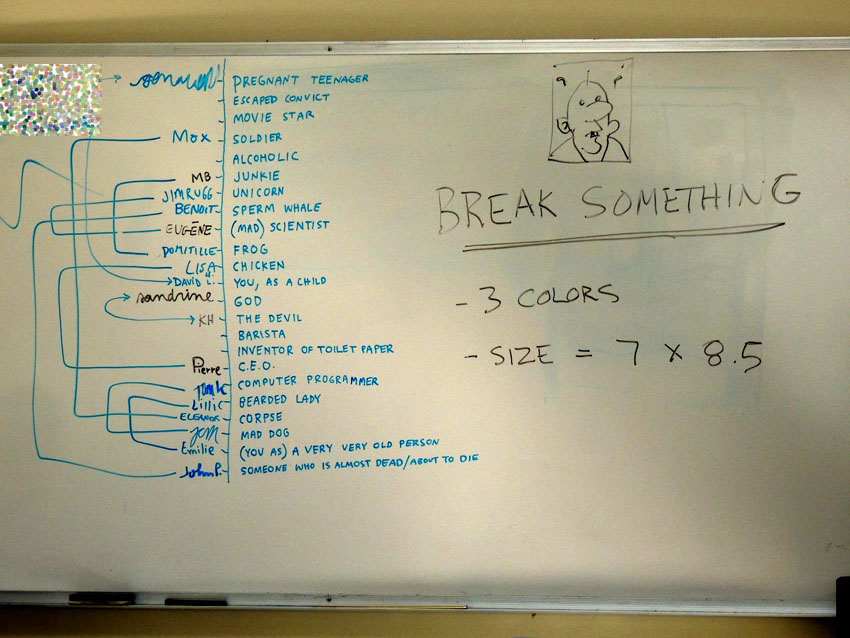 PREGNANT TEENAGER
ESCAPED CONVICT
MOVIE STAR
Mox SOLDIER
ALCOHOLIC
MB JUNKIE
JIM RUGG UNICORN
BENOIT SPERM WHALE
EUGÈNE (MAD) SCIENTIST
DOMITILLE FROG
LISA CHICKEN
DAVID L. YOU, AS A CHILD
sandrine GOD
KH THE DEVIL
BARISTA
INVENTOR OF TOILET PAPER
Pierre C.E.O.
COMPUTER PROGRAMMER
Lillic BEARDED LADY
ELEANOR CORPSE
MAD DOG
Emilie (YOU AS) A VERY VERY OLD PERSON
John P. SOMEONE WHO IS ALMOST DEAD/ABOUT TO DIE
BREAK SOMETHING
- 3 COLORS
- SIZE = 7 x 8.5